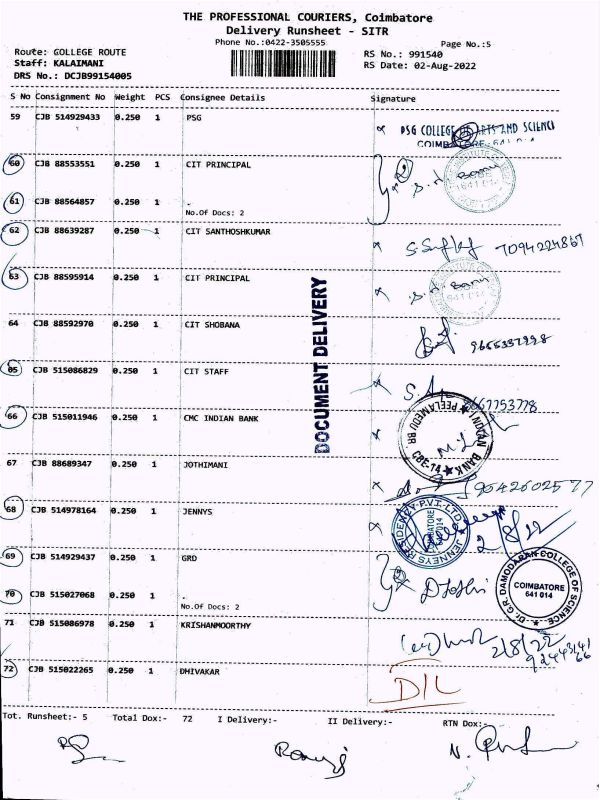 THE PROFESSIONAL COURIERS, Coimbatore
Delivery Runsheet - SITR
Phone No.:0422-3505555
Page No.:5
Route: COLLEGE ROUTE
RS No.: 991540
Staff: KALAIMANI
RS Date: 02-Aug-2022
DRS No.: DCJB99154005
S No Consignment No Weight PCS Consignee Details Signature
59 CJB 514929433 0.250 1 PSG
PSG COLLEGE OF ARTS AND SCIENCE
COIMBATORE-641 014
60 CJB 88553551 0.250 1 CIT PRINCIPAL
61 CJB 88564857 0.250 1 .
No.Of Docs: 2
62 CJB 88639287 0.250 1 CIT SANTHOSHKUMAR
7094224867
63 CJB 88595914 0.250 1 CIT PRINCIPAL
64 CJB 88592970 0.250 1 CIT SHOBANA
9655337998
65 CJB 515086829 0.250 1 CIT STAFF
DOCUMENT DELIVERY
66 CJB 515011946 0.250 1 CMC INDIAN BANK
INDIAN BANK PEELAMEDU BR. CBE-14
67 CJB 88689347 0.250 1 JOTHIMANI
68 CJB 514978164 0.250 1 JENNYS
JENNEYS RESIDENCY PVT. LTD. COIMBATORE 641 014
2/8/22
69 CJB 514929437 0.250 1 GRD
Dr. G.R. DAMODARAN COLLEGE OF SCIENCE
COIMBATORE
641 014
70 CJB 515027068 0.250 1 .
No.Of Docs: 2
71 CJB 515086978 0.250 1 KRISHANMOORTHY
2/8/22
72 CJB 515022265 0.250 1 DHIVAKAR
D/L
Tot. Runsheet:- 5 Total Dox:- 72 I Delivery:- II Delivery:- RTN Dox:-